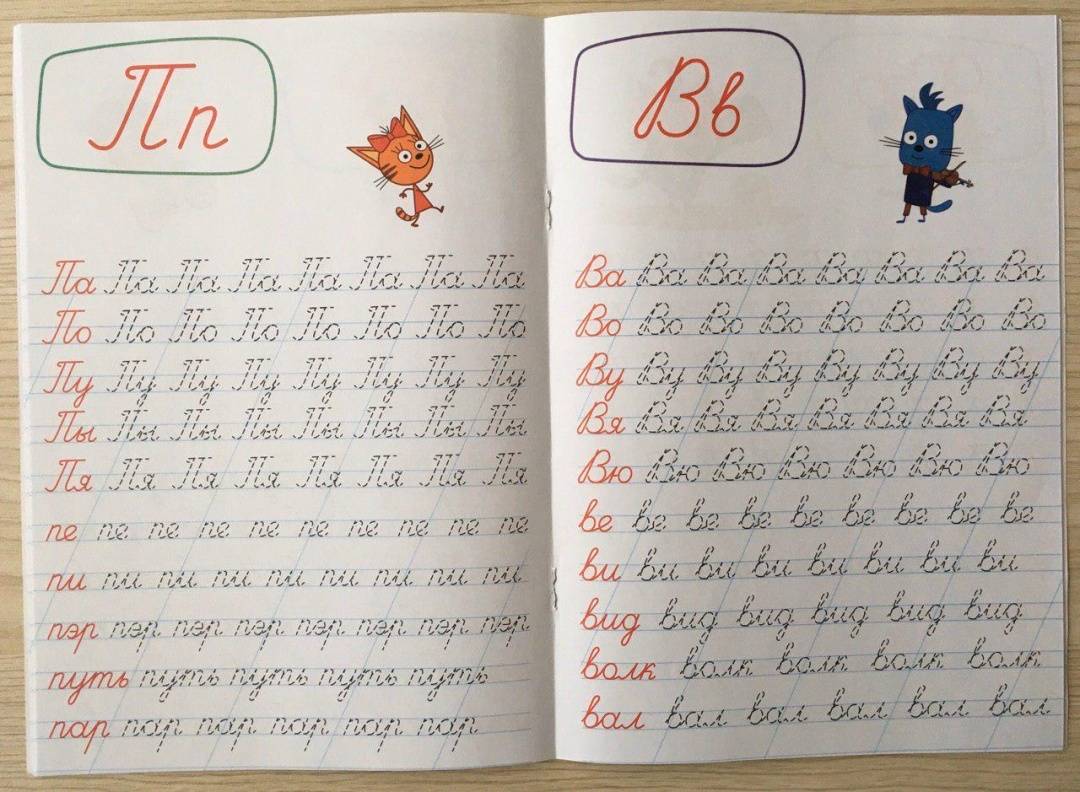 Пп
Па Па Па Па Па Па Па Па
По По По По По По По По
Пу Пу Пу Пу Пу Пу Пу Пу
Пы Пы Пы Пы Пы Пы Пы Пы
Пя Пя Пя Пя Пя Пя Пя Пя
пе пе пе пе пе пе пе пе пе пе
пи пи пи пи пи пи пи пи пи
пэр пэр пэр пэр пэр пэр пэр пэр
путь путь путь путь путь
пар пар пар пар пар пар
Вв
Ва Ва Ва Ва Ва Ва Ва Ва
Во Во Во Во Во Во Во Во
Ву Ву Ву Ву Ву Ву Ву Ву
Вя Вя Вя Вя Вя Вя Вя Вя
Вю Вю Вю Вю Вю Вю Вю
ве ве ве ве ве ве ве ве ве
ви ви ви ви ви ви ви ви
вид вид вид вид вид вид
волк волк волк волк волк
вал вал вал вал вал вал